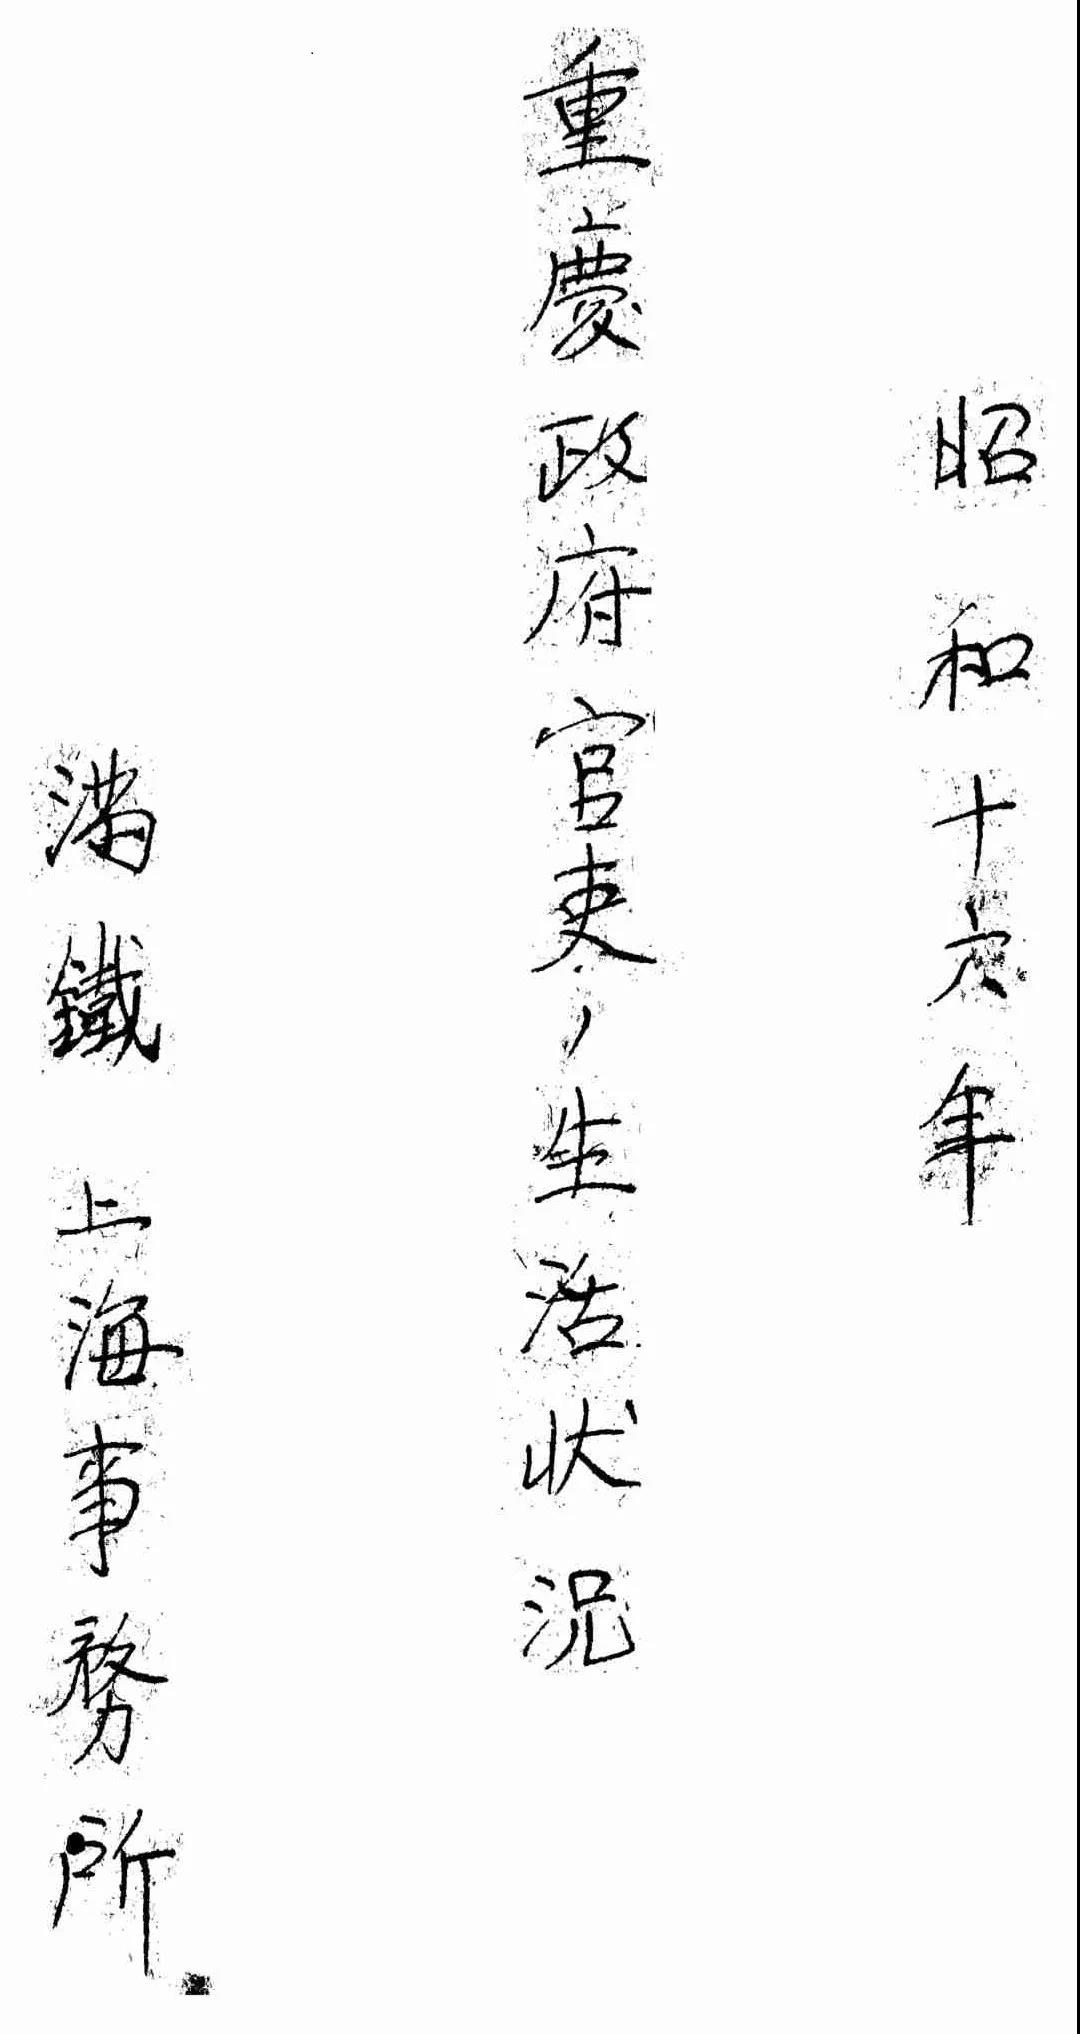 昭和十六年
重慶政府官吏ノ生活状況
満鐵上海事務所